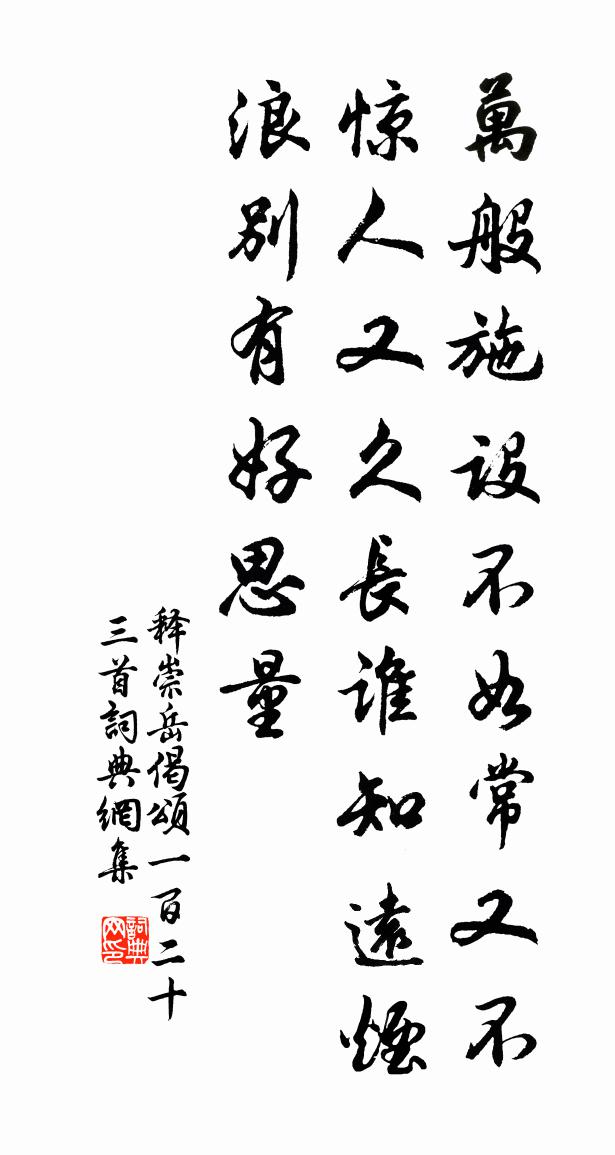 萬般施設不如常又不
惊人又久長誰知遠煙
浪別有好思量
释崇岳偈頌一百二十
三首詞典網集
詞典网印